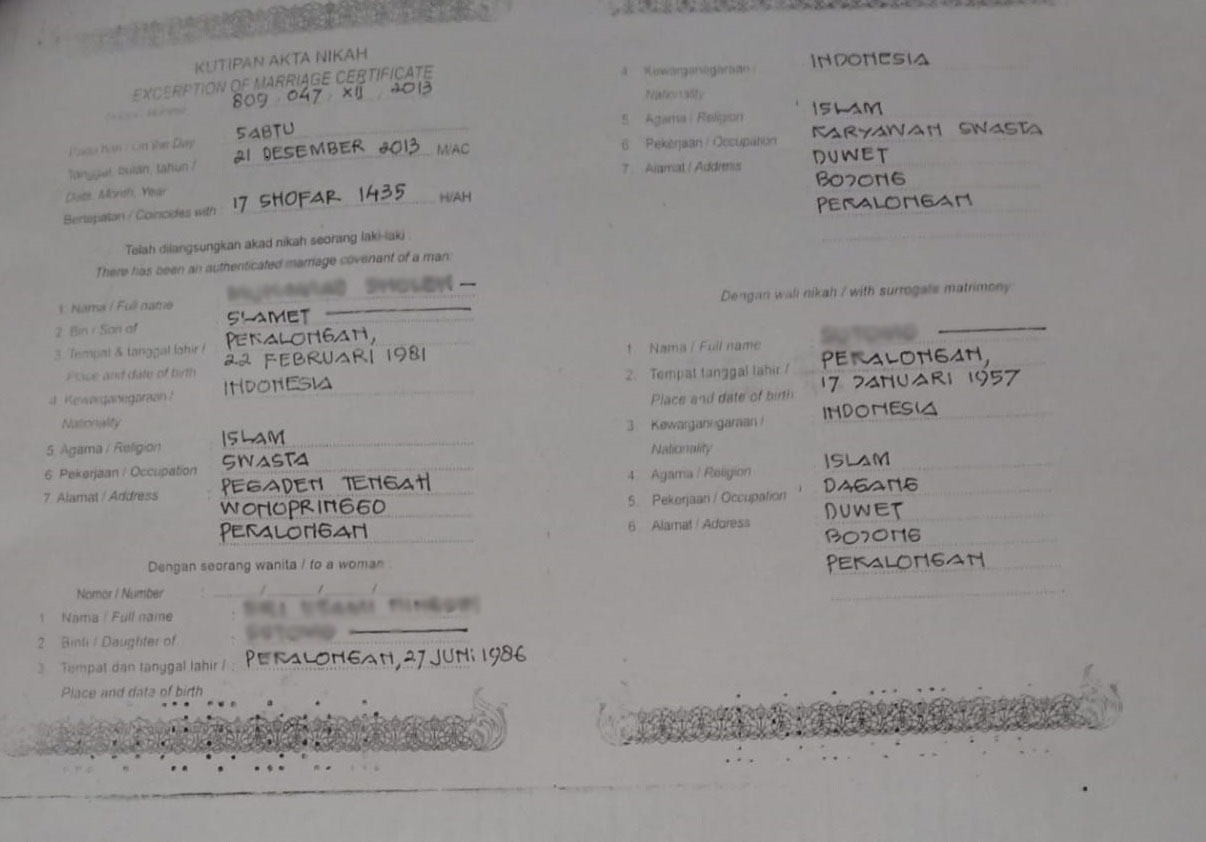 KUTIPAN AKTA NIKAH
EXCERPTION OF MARRIAGE CERTIFICATE
809 . 047 . XII . 2013
Pada hari / On the Day
SABTU
Tanggal, bulan, tahun /
21 DESEMBER 2013 M/AC
Date, Month, Year
Bertepatan / Coincides with : 17 SHOFAR 1435 H/AH
Telah dilangsungkan akad nikah seorang laki-laki :
There has been an authenticated marriage covenant of a man:
1. Nama / Full name
2. Bin / Son of SLAMET
3. Tempat & tanggal lahir / PEKALONGAN,
22 FEBRUARI 1981
Place and date of birth
4. Kewarganegaraan / INDONESIA
Nationality
5. Agama / Religion ISLAM
6. Pekerjaan / Occupation SWASTA
7. Alamat / Address : PEGADEN TENGAH
WONOPRINGGO
PEKALONGAN
Dengan seorang wanita / to a woman :
Nomor / Number : / / /
1 Nama / Full name :
2 Binti / Daughter of :
3. Tempat dan tanggal lahir / : PEKALONGAN, 27 JUNI 1986
Place and date of birth
4 Kewarganegaraan / INDONESIA
Nationality
5. Agama / Religion ISLAM
6 Pekerjaan / Occupation KARYAWAN SWASTA
7. Alamat / Address DUWET
BOJONG
PEKALONGAN
Dengan wali nikah / with surrogate matrimony
1. Nama / Full name
2. Tempat tanggal lahir / PEKALONGAN,
17 JANUARI 1957
Place and date of birth
3. Kewarganegaraan / INDONESIA
Nationality
4. Agama / Religion ISLAM
5. Pekerjaan / Occupation DAGANG
6. Alamat / Address DUWET
BOJONG
PEKALONGAN